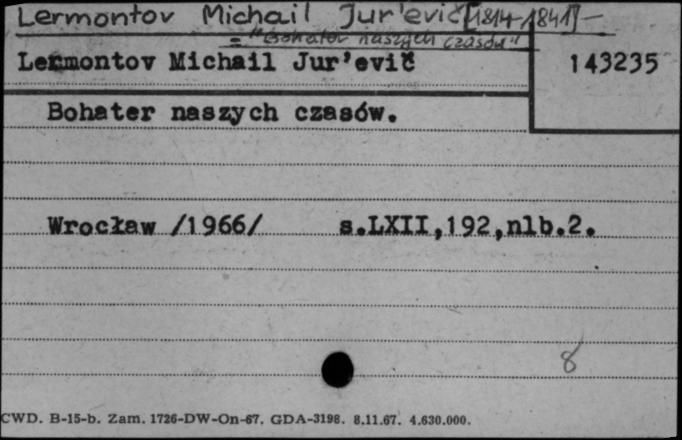 Lermontov Michail Jur'evič [1814-1841] -
= "Bohater naszych czasów"
Lermontov Michail Jur'evič 143235
Bohater naszych czasów.
Wrocław /1966/ s.LXII,192,nlb.2.
8
CWD. B-15-b. Zam. 1726-DW-On-67. GDA-3198. 8.11.67. 4.630.000.